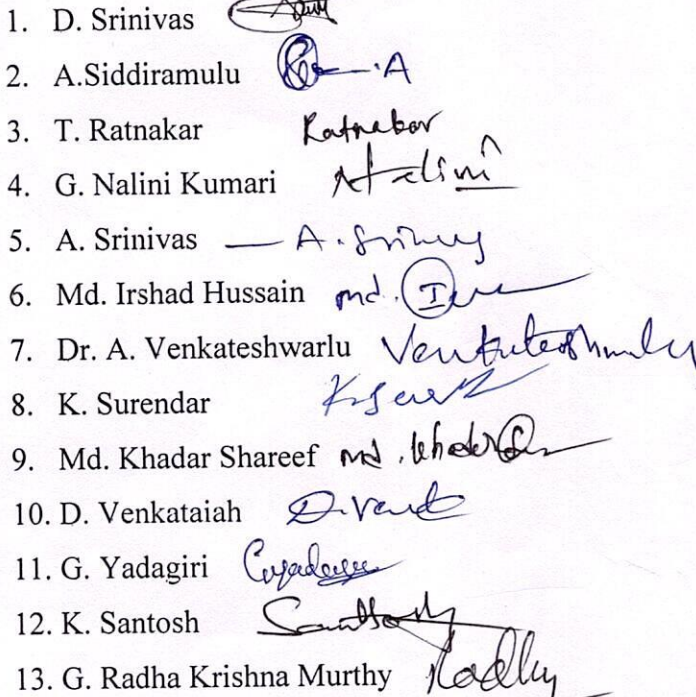 1. D. Srinivas
2. A.Siddiramulu A
3. T. Ratnakar Ratnakar
4. G. Nalini Kumari Nalini
5. A. Srinivas — A. Srinivas
6. Md. Irshad Hussain md. I
7. Dr. A. Venkateshwarlu Venkateshwarlu
8. K. Surendar
9. Md. Khadar Shareef md. khader
10. D. Venkataiah D. Venkat
11. G. Yadagiri G. Yadagiri
12. K. Santosh Santosh
13. G. Radha Krishna Murthy Radha